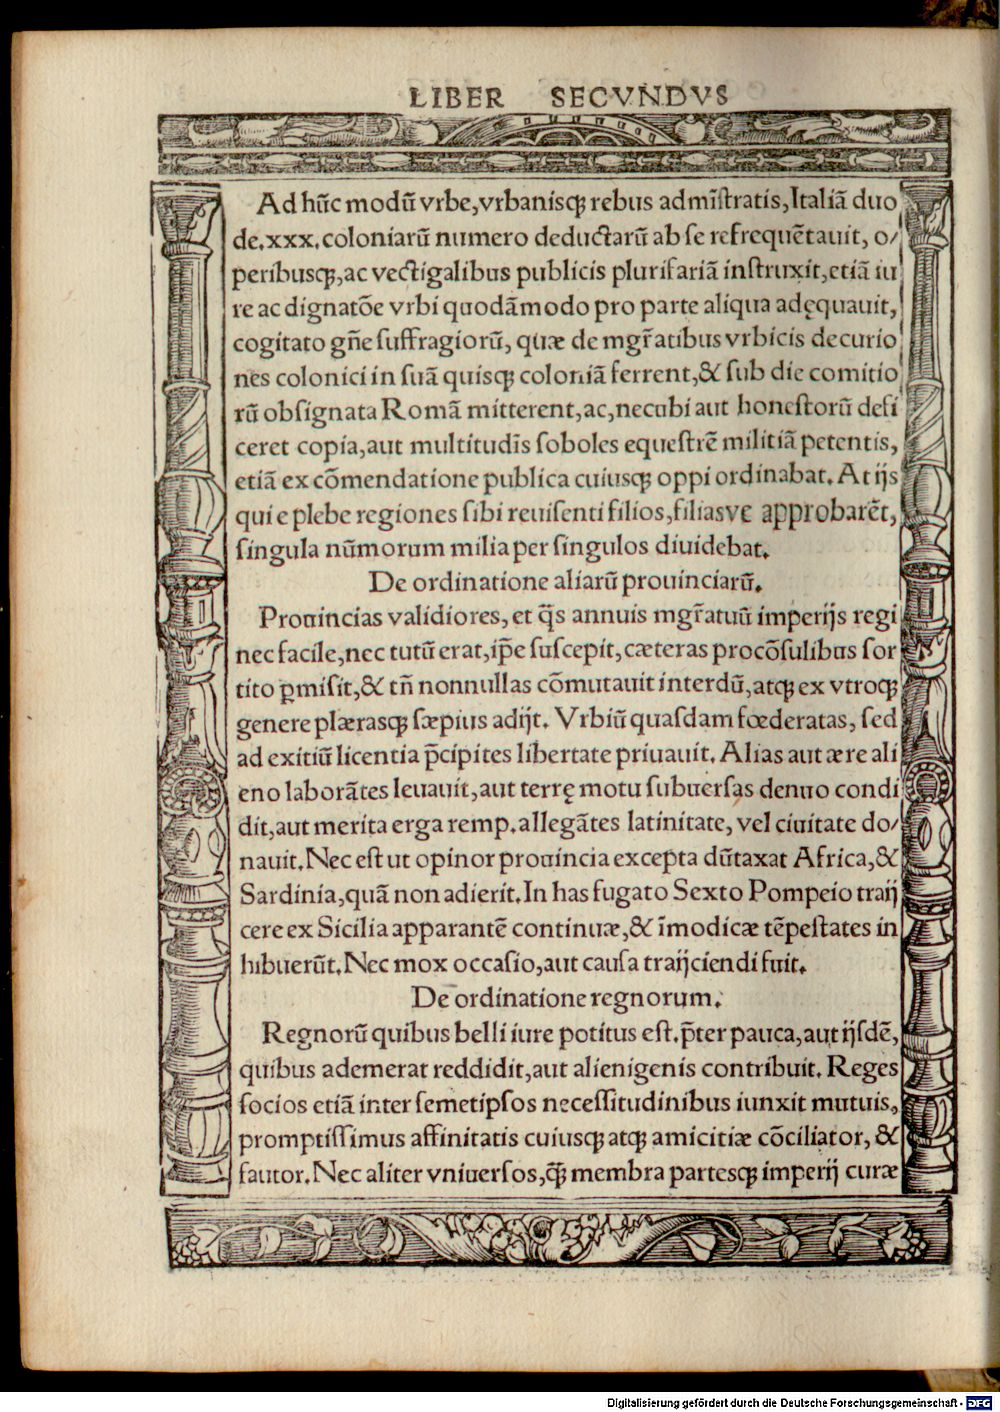 LIBER SECVNDVS
Ad hūc modū vrbe,vrbanisqꝫ rebus admīstratis,Italiā duo
de.xxx.coloniarū numero deductarū ab se refrequētauit, o/
peribusqꝫ,ac vectigalibus publicis plurifariā instruxit,etiā iu
re ac dignatōe vrbi quodāmodo pro parte aliqua adęquauit,
cogitato gñe suffragiorū, quæ de mgr̃atibus vrbicis decurio
nes colonici in suā quisqꝫ coloniā ferrent,& sub die comitio
rū obsignata Romā mitterent,ac,necubi aut honestorū defi
ceret copia,aut multitudīs soboles equestrē militiā petentis,
etiā ex cōmendatione publica cuiusqꝫ oppi ordinabat. At ijs
qui e plebe regiones sibi reuisenti filios,filiasve approbarēt,
singula nūmorum milia per singulos diuidebat.
De ordinatione aliarū prouinciarū.
Prouincias validiores, et q̃s annuis mgr̃atuū imperijs regi
nec facile,nec tutū erat,ip̃e suscepit,cæteras procōsulibus sor
tito ꝑmisit,& tñ nonnullas cōmutauit interdū,atqꝫ ex vtroqꝫ
genere plærasqꝫ sæpius adijt. Vrbiū quasdam fœderatas, sed
ad exitiū licentia p̃cipites libertate priuauit. Alias aut ære ali
eno laborātes leuauit,aut terrę motu subuersas denuo condi
dit,aut merita erga remp.allegātes latinitate, vel ciuitate do/
nauit. Nec est ut opinor prouincia excepta dūtaxat Africa,&
Sardinia,quā non adierit. In has fugato Sexto Pompeio traij
cere ex Sicilia apparantē continuæ,& īmodicæ tēpestates in
hibuerūt. Nec mox occasio,aut causa traijciendi fuit.
De ordinatione regnorum.
Regnorū quibus belli iure potitus est.p̃ter pauca,aut ijsdē,
quibus ademerat reddidit,aut alienigenis contribuit. Reges
socios etiā inter semetipsos necessitudinibus iunxit mutuis,
promptissimus affinitatis cuiusqꝫ atqꝫ amicitiæ cōciliator, &
fautor. Nec aliter vniuersos,q̃ꝫ membra partesqꝫ imperij curæ
Digitalisierung gefördert durch die Deutsche Forschungsgemeinschaft - DFG